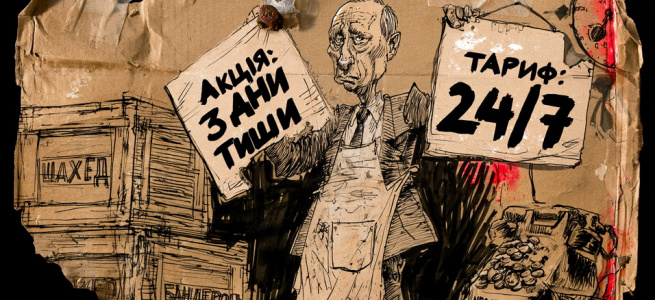 АКЦІЯ:
3 ДНИ
ТИШИ
ТАРИФ:
24/7
ШАХЕД